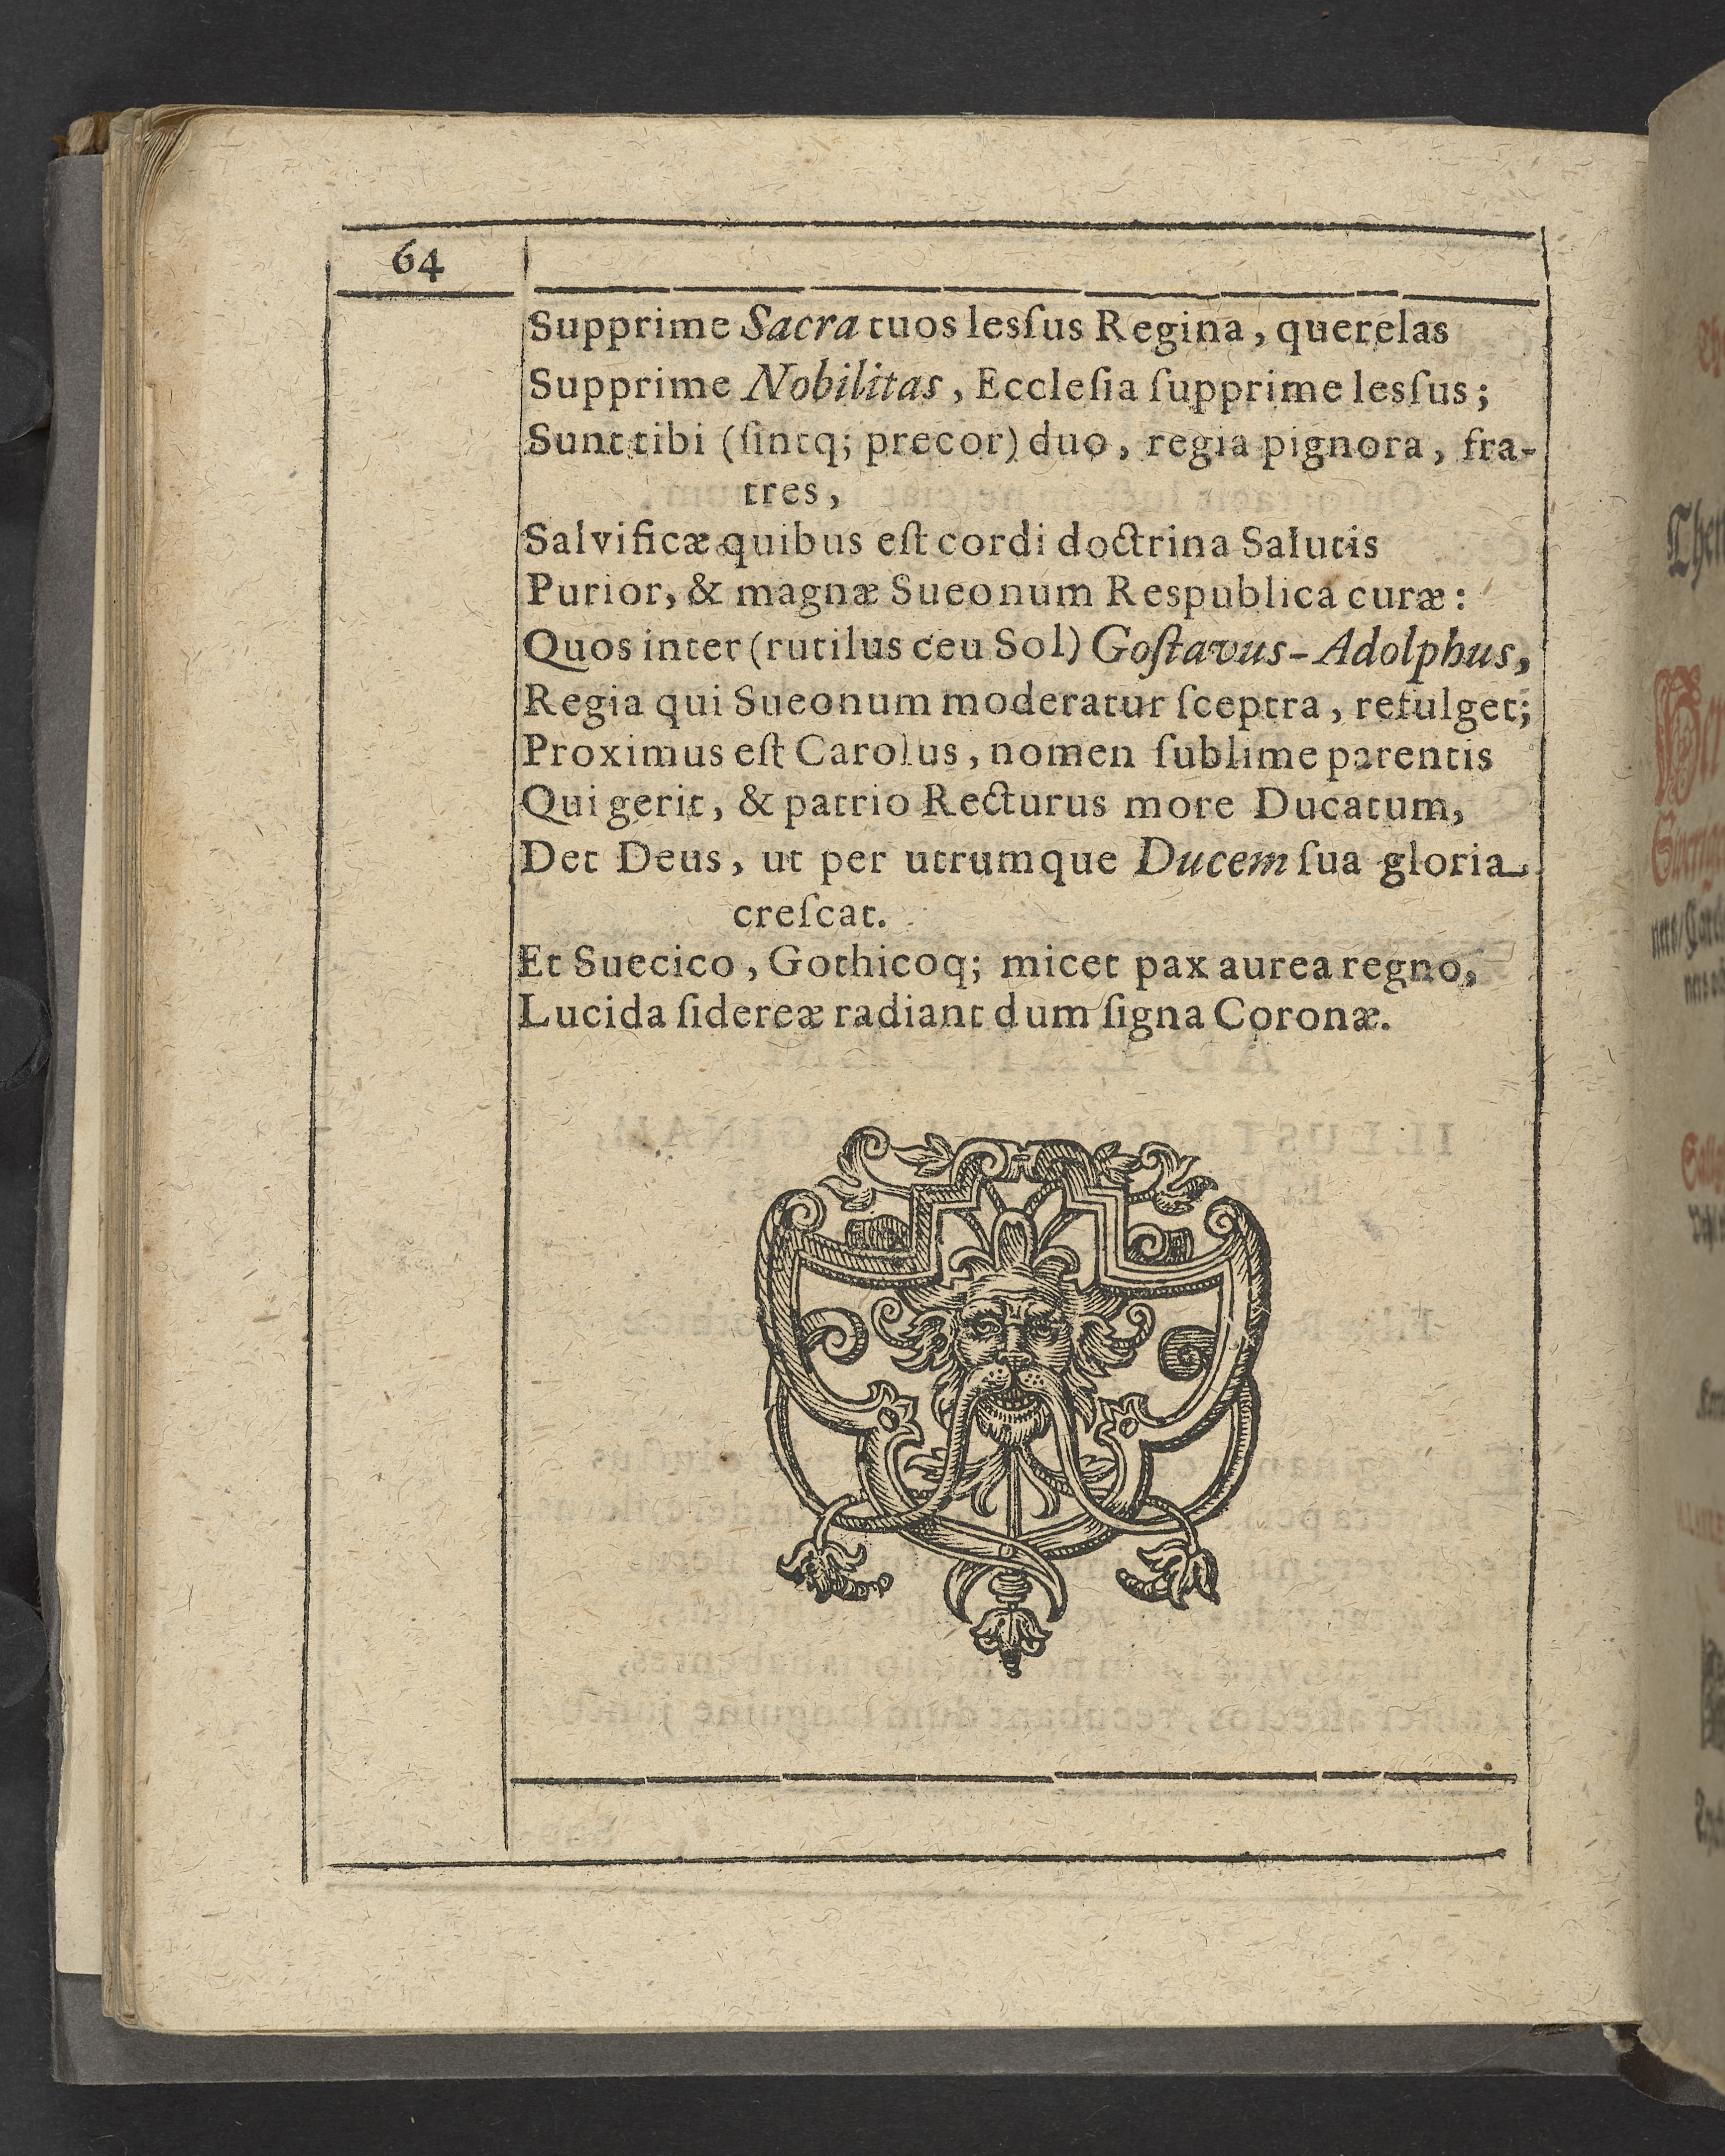 64
Supprime Sacra tuos lesſus Regina, querelas
Supprime Nobilitas, Eccleſia ſupprime lesſus;
Sunt tibi (ſintq; precor) duo, regia pignora, fra-
tres,
Salvificæ quibus eſt cordi doctrina Salutis
Purior, & magnæ Sueonum Respublica curæ:
Quos inter (rutilus ceu Sol) Goſtavus-Adolphus,
Regia qui Sueonum moderatur ſceptra, refulget;
Proximus eſt Carolus, nomen ſublime parentis
Qui gerit, & patrio Recturus more Ducatum,
Det Deus, ut per utrumque Ducem ſua gloria
creſcat.
Et Suecico, Gothicoq; micet pax aurea regno,
Lucida ſidereæ radiant dum ſigna Coronæ.